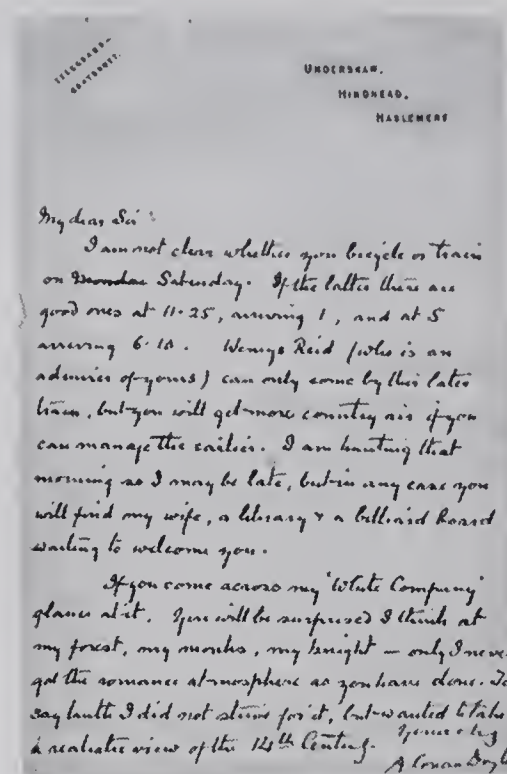 TELEGRAMS—
GRAYSHOTT.
UNDERSHAW,
HINDHEAD,
HASLEMERE
My dear Sir
I am not clear whether you bicycle or train
on Saturday. If the latter there are
good ones at 11.25, arriving 1, and at 5
arriving 6.10. Wemyss Reid (who is an
admirer of yours) can only come by this later
train, but you will get more country air if you
can manage the earlier. I am hunting that
morning so I may be late, but in any case you
will find my wife, a library & a billiard board
waiting to welcome you.
If you come across my 'White Company'
glance at it. You will be surprised I think at
my forest, my monks, my knight — only I never
got the romance atmosphere as you have done. To
say truth I did not strive for it, but wanted to take
a realistic view of the 14th Century.
Yours truly
A Conan Doyle